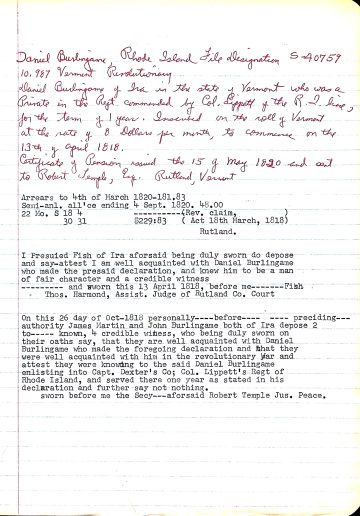 Daniel Burlingame, Rhode Island File Designation S-40759
10.987 Vermont Revolutionary
Daniel Burlingame of Ira in the state of Vermont who was a
Private in the Regt commended by Col. Lippett of the R.I. line,
for the term of 1 year. Inscribed on the roll of Vermont
at the rate of 8 Dollars per month, to commence on the
13th of April 1818.
Certificate of Pension issued the 15 of May 1820 and sent
to Robert Temple, Esq. Rutland, Vermont
Arrears to 4th of March 1820-181.83
Semi-anl. all'ce ending 4 Sept. 1820. 48.00
22 Mo. S 18 4 ----------(Rev. claim, )
30 31 $229:83 ( Act 18th March, 1818)
Rutland.
I Presuied Fish of Ira aforsaid being duly sworn do depose
and say-attest I am well acquainted with Daniel Burlingame
who made the presaid declaration, and knew him to be a man
of fair character and a credible witness
--------- and sworn this 13 April 1818, before me-------Fish
Thos. Harmond, Assist. Judge of Rutland Co. Court
On this 26 day of Oct-1818 personally----before---- ---- preciding---
authority James Martin and John Burlingame both of Ira depose 2
to----- known, 4 credible witness, who being duly sworn on
their oaths say, that they are well acquainted with Daniel
Burlingame who made the foregoing declaration and that they
were well acquainted with him in the revolutionary War and
attest they were knowing to the said Daniel Burlingame
enlisting into Capt. Dexter's Co; Col. Lippett's Regt of
Rhode Island, and served there one year as stated in his
declaration and further say not nothing.
sworn before me the Secy---aforsaid Robert Temple Jus. Peace.